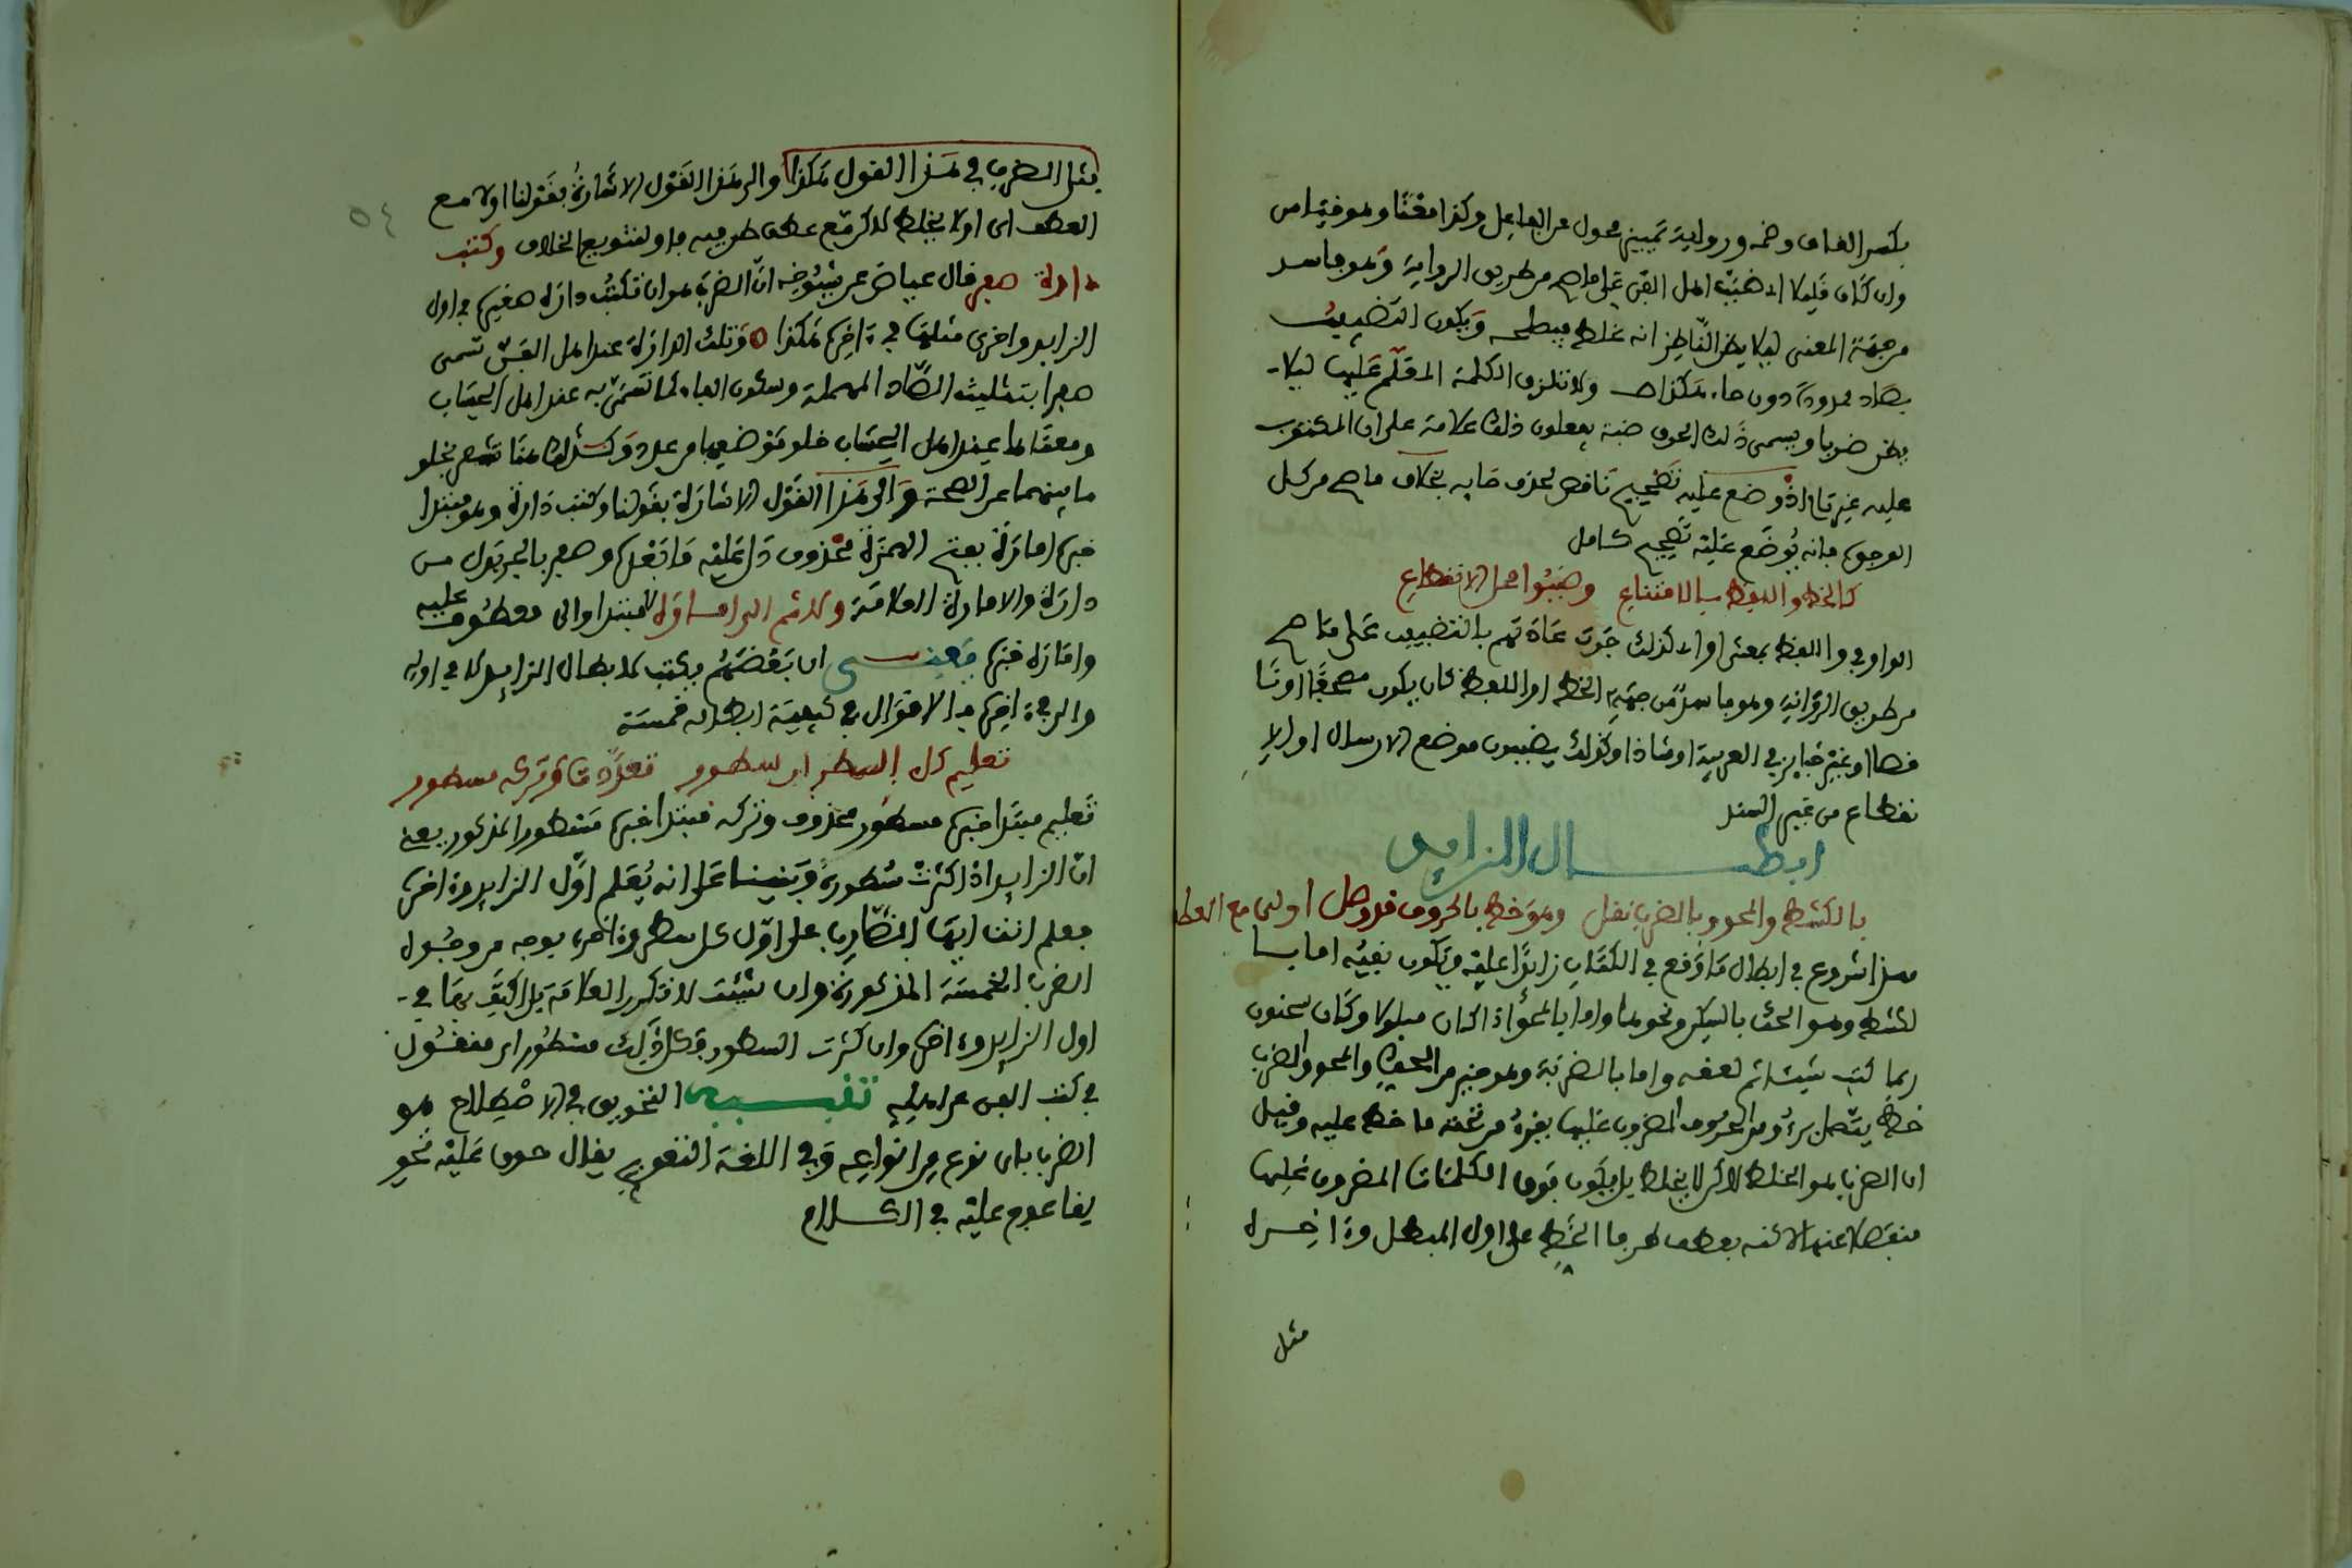 بكسر القاف وضمه ورواية تمييز محول عن الفاعل وكذا معنا وهو فيه امن
وان كان قليلا اذ ضبب اهل الفن على ما صح من طريق الرواية وهو فاسد
من جهة المعنى ليلا يظن الناظر انه غلط فيصلحه ويكون التضبيب
بصاد ممدودة دون حاء هكذا صـ ولا تلزق الكلمة المعلم عليها ليلا
يظن ضربا ويسمى ذلك الحرف ضبة يجعلون ذلك علامة على ان المكتوب
عليه غير تام اذ وضع عليه تصحيح ناقص لحذف حايه بخلاف ما صح من كل
الوجوه فانه يوضع عليه تصحيح كامل
كالخط واللفظ بالامتناع وضببوا محل الانقطاع
الواو في واللفظ بمعنى او اي كذلك جرت عادتهم بالتضبيب على ما صح
من طريق الرواية وهو فاسد من جهة الخط او اللفظ كان يكون مصحفا او نا
قصا او غير جايز في العربية او شاذا وكذلك يضببون موضع الارسال او الا
نقطاع من غير السند
ابطال الزايد
بالكشط والمحو وبالضرب نقل وهو خط بالحروف قد وصل او لى مع العطف
هذا شروع في ابطال ما وقع في الكتاب زايدا عليه ويكون نفيه اما با
لكشط وهو الحك بالسكين ونحوها واما بالمحو اذا كان مبلولا وكان سحنون
ربما كتب شيئا ثم لعقه واما بالضرب وهو خير من الحك والمحو والضرب
خط يتصل برءوس الحروف المضروب عليها يفرق من تحته ما خط عليه وقيل
ان الضرب هو الخلط لكن لا يخلط بل يكون فوق الكلمات المضروب عليها
منفصلا عنها لكنه يعطف طرفا الخط على اول المبطل وءاخره
مثل
مثل الضرب في هذا القول هكذا والى هذا القول الاشارة بقولنا او لا مع
العطف اي او لا يخلط لكن مع عطف طرفيه فاو لتنويع الخلاف وكتب
دارة صفر قال عياض عن شيوخه ان الضرب هو ان تكتب دارة صغيرة في اول
الزايد واخرى مثلها في ءاخره هكذا ٥ وتلك الدارة عند اهل الفن تسمى
صفرا بتثليث الصاد المهملة وسكون الفاء كما تسمى به عند اهل الحساب
ومعناها عند اهل الحساب خلو موضعها من عدد وكذلك هنا تشعر بخلو
ما بينهما عن الصحة والى هذا القول الاشارة بقولنا وكتب دارة وهو مبتدا
خبره امارة بفتح الهمزة محذوف دل عليه ما بعده وصفر بالجر بدل من
دارة والامارة العلامة ولا ثم الى امارة لا مبتدا والى معطوف عليه
وامارة خبره يعني ان بعضهم يكتب لابطال الزايد لا في اوله
والى في ءاخره فالاقوال في كيفية ابطاله خمسة
تعليم كل السطر ان سطور تعددت او تركه مسطور
تعليم مبتدا خبره مسطور محذوف وتركه مبتدا خبره مسطور المذكور يعني
ان الزايد اذا كثرت سطوره وبنينا على انه يعلم اول الزايد وءاخره
فعلم انت ايها الضارب على اول كل سطر وءاخره بوجه من وجوه
الضرب الخمسة المذكورة وان شئت لا تكرر العلامة بل اكتف بها في
اول الزايد وءاخره وان كثرت السطور فكل ذلك مسطور اي منقول
في كتب الفن عن اهليه تنبيه التحويق في الاصطلاح هو
الضرب باي نوع من انواعه وفي اللغة التعويج يقال حوق عليه نحو
يقا عوج عليه في الكلام